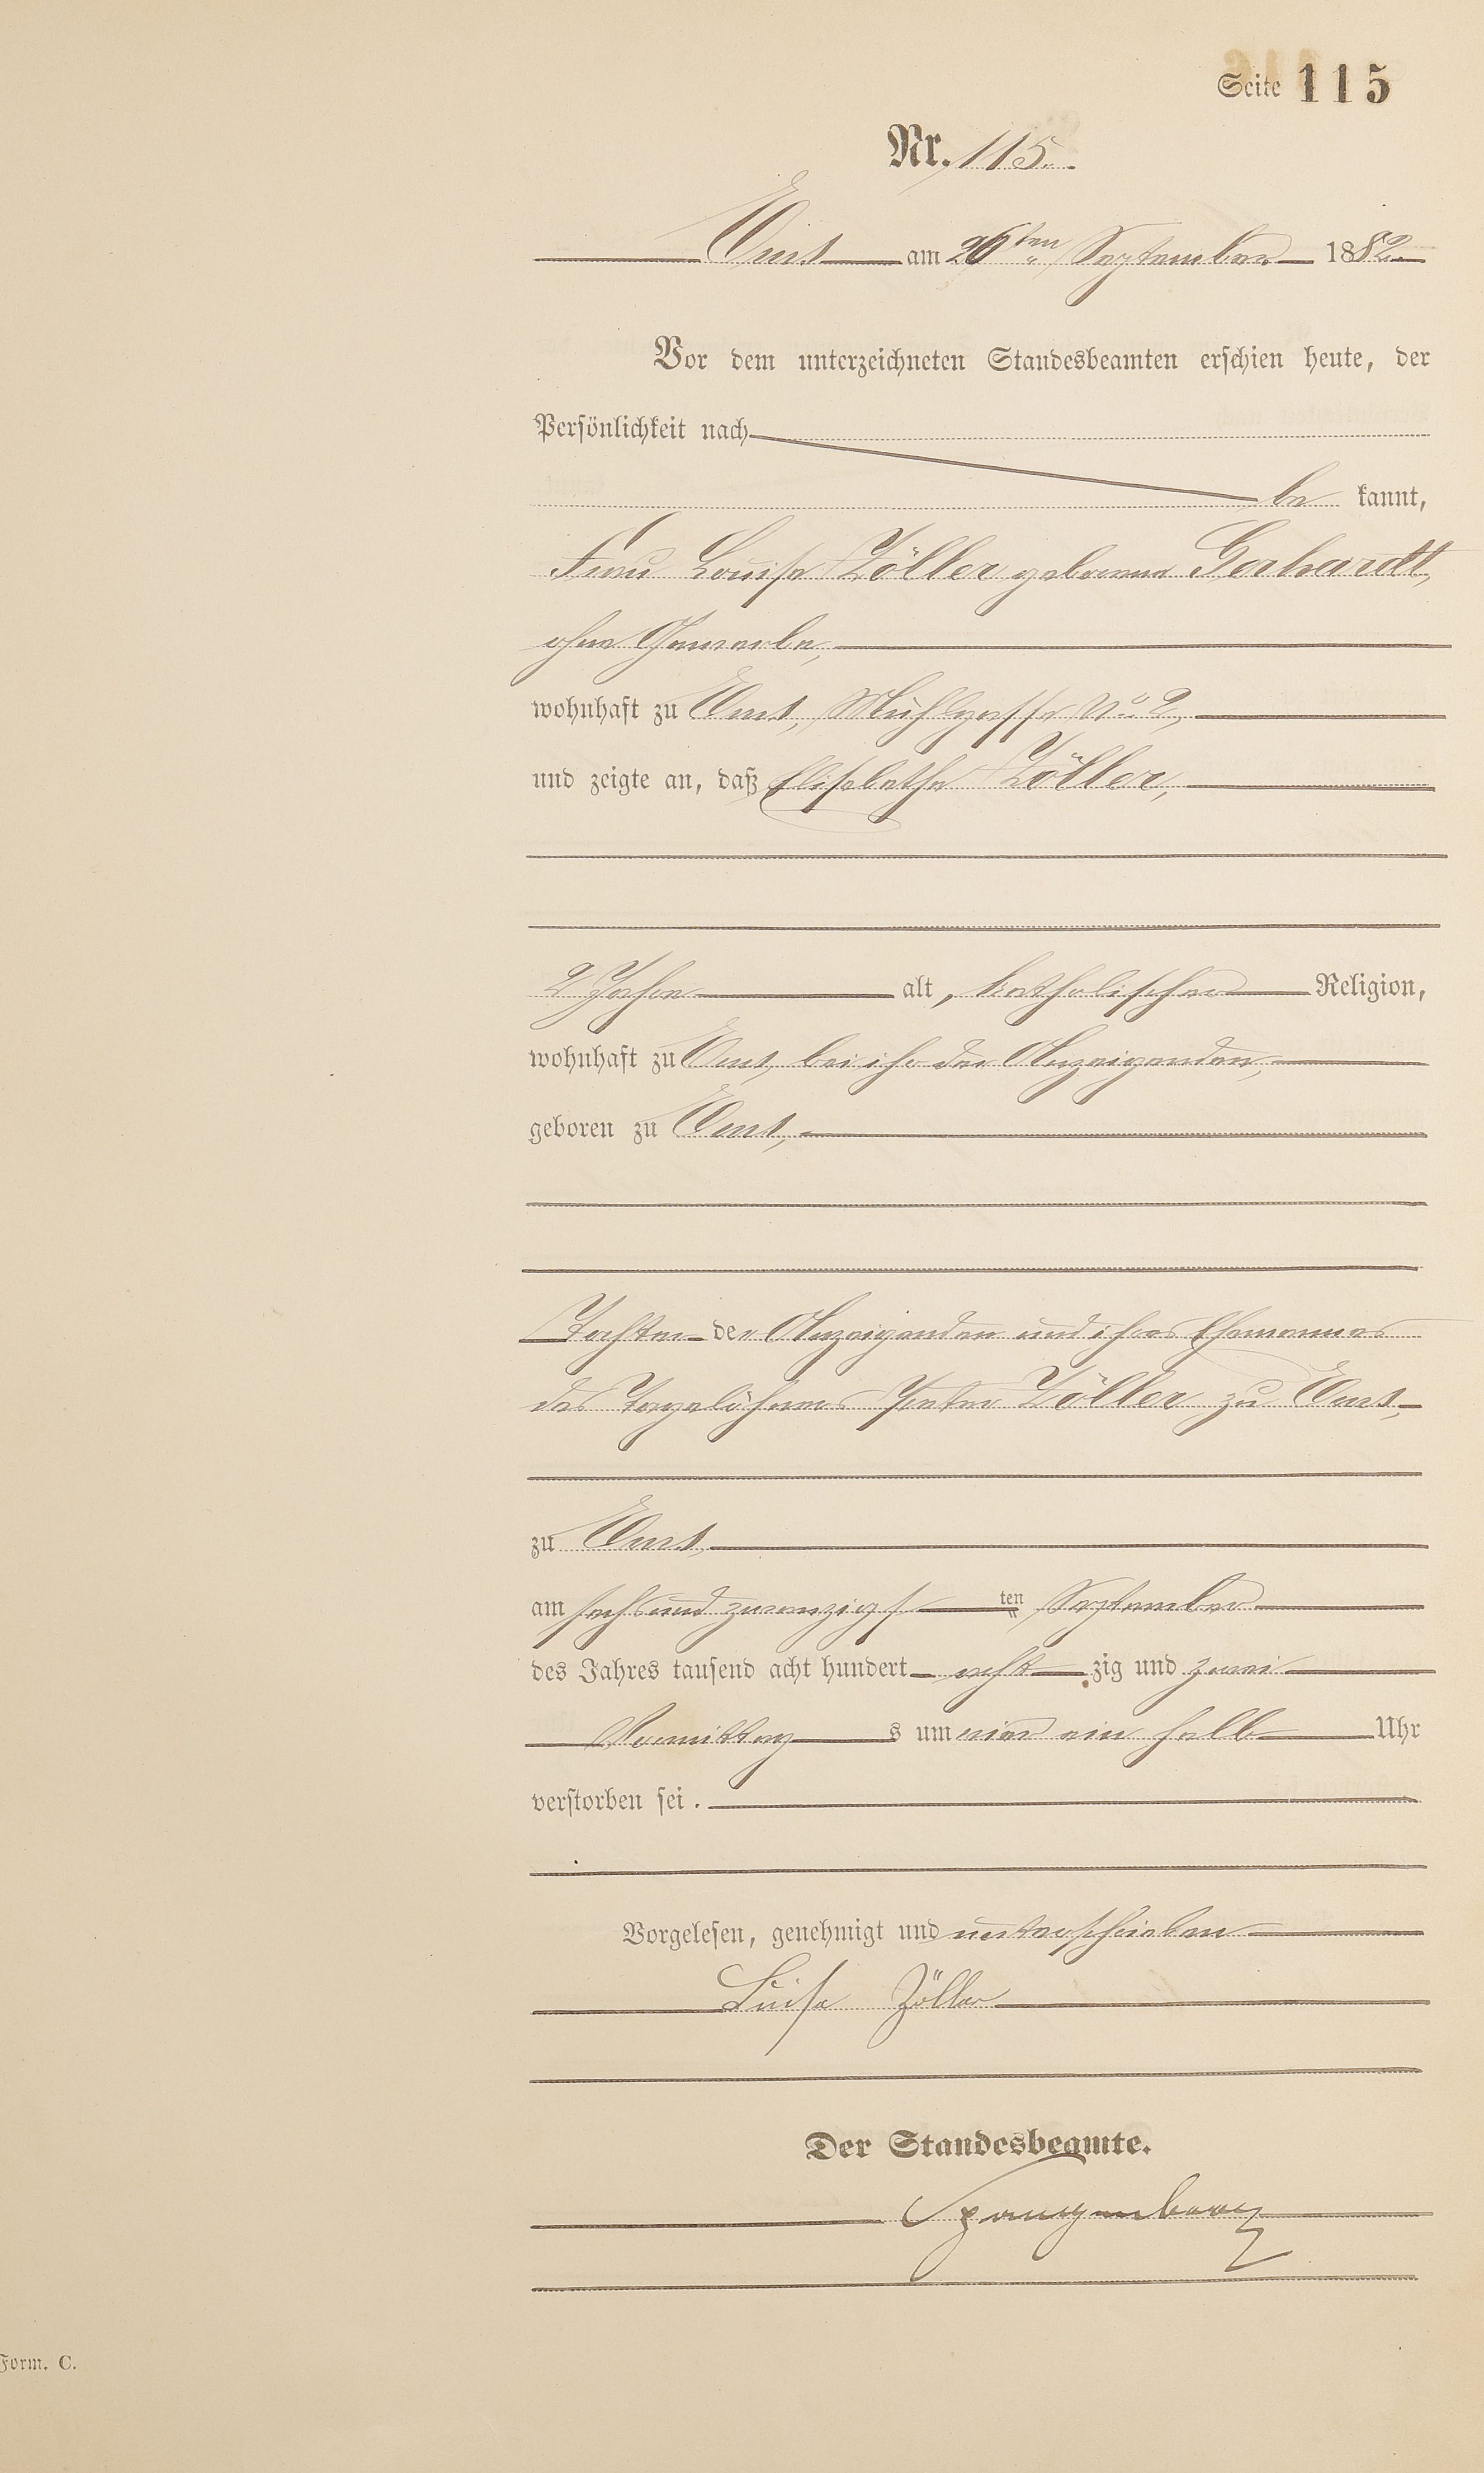 Seite 115
Nr. 115.
Ems am 26ten September 1882
Vor dem unterzeichneten Standesbeamten erschien heute, der
Persönlichkeit nach
be kannt,
Frau Louise Zöller geborene Gerhardt,
ohne Gewerbe,
wohnhaft zu Ems, Mühlgasse No 2,
und zeigte an, daß Elisabethe Zöller,
2 Jahre alt, katholischer Religion,
wohnhaft zu Ems, bei ihr der Anzeigenden,
geboren zu Ems,
Tochter der Anzeigenden und ihres Ehemannes
des Tagelöhners Peter Zöller zu Ems,
zu Ems,
am sechsundzwanzigs ten September
des Jahres tausend acht hundert acht zig und zwei
Vormittag s um vier ein halb Uhr
verstorben sei.
Vorgelesen, genehmigt und unterschrieben
Luise Zöller
Der Standesbeamte.
Spangenberg
Form. C.